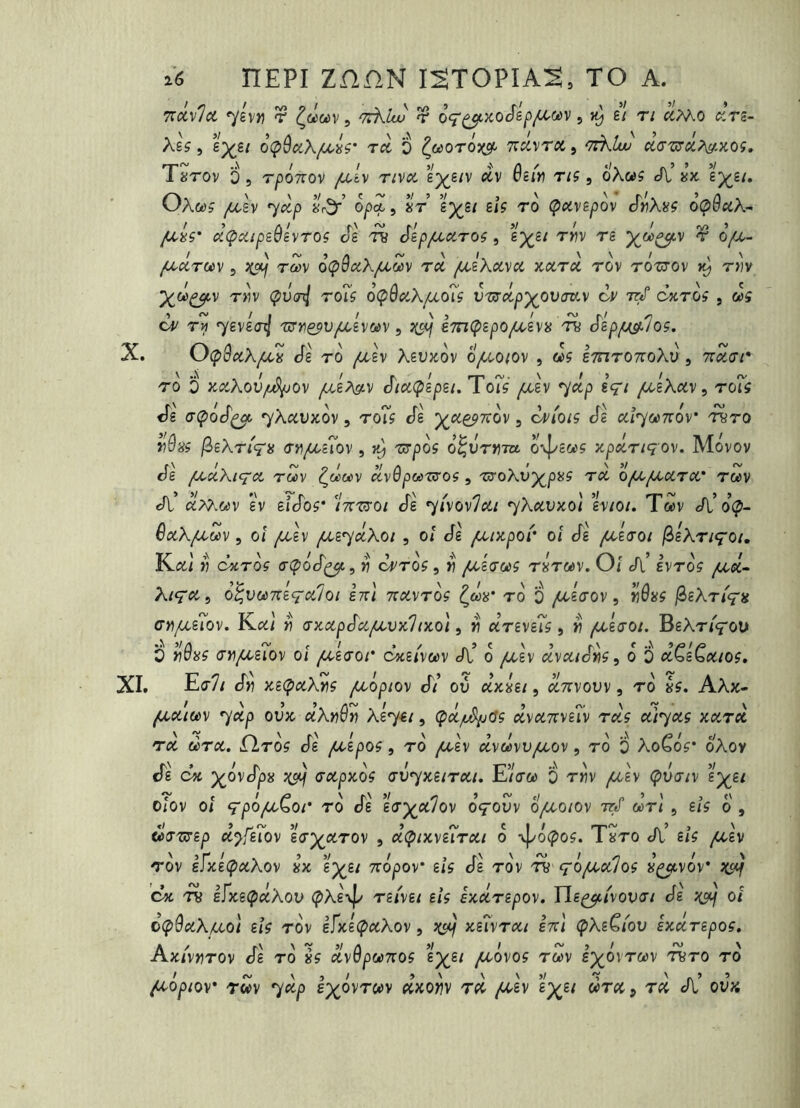 26 ΠΕΡΙ ΖΩΩΝ ΙΣΤΟΡΙΑΣ, ΤΟ Α.
πάντα γένη τ̃ ζώων, πλὴν τ̃ ὀστρακοδέρμων, καὶ εἴ τι ἄλλο ἀτε-
λὲς, ἔχει ὀφθαλμούς· τὰ δὲ ζωοτόκα πάντα, πλὴν ἀσπάλακος.
Τοῦτον δὲ, τρόπον μέν τινα ἔχειν ἂν θείη τις, ὅλως δ' οὐκ ἔχει.
Ὅλως μὲν γὰρ οὔθ' ὁρᾷ, οὔτ' ἔχει εἰς τὸ φανερὸν δήλους ὀφθαλ-
μούς· ἀφαιρεθέντος δὲ τοῦ δέρματος, ἔχει τήν τε χώραν τ̃ ὀμ-
μάτων, καὶ τῶν ὀφθαλμῶν τὰ μέλανα κατὰ τὸν τόπον καὶ τὴν
χώραν τὴν φύσει τοῖς ὀφθαλμοῖς ὑπάρχουσαν ἐν τῷ ἐκτὸς, ὡς
ἐν τῇ γενέσει πηρουμένων, καὶ ἐπιφερομένου τοῦ δέρματος.
X. Ὀφθαλμοῦ δὲ τὸ μὲν λευκὸν ὅμοιον, ὡς ἐπιτοπολὺ, πᾶσι·
τὸ δὲ καλούμενον μέλαν διαφέρει. Τοῖς μὲν γάρ ἐστι μέλαν, τοῖς
δὲ σφόδρα γλαυκὸν, τοῖς δὲ χαροπὸν, ἐνίοις δὲ αἰγωπόν· τοῦτο
ἤθους βελτίστου σημεῖον, καὶ πρὸς ὀξύτητα ὄψεως κράτιστον. Μόνον
δὲ μάλιστα τῶν ζώων ἄνθρωπος, πολύχρους τὰ ὄμματα· τῶν
δ' ἄλλων ἓν εἶδος· ἵπποι δὲ γίνονται γλαυκοὶ ἔνιοι. Τῶν δ' ὀφ-
θαλμῶν, οἱ μὲν μεγάλοι, οἱ δὲ μικροί· οἱ δὲ μέσοι βέλτιστοι.
Καὶ ἢ ἐκτὸς σφόδρα, ἢ ἐντὸς, ἢ μέσως τούτων. Οἱ δ' ἐντὸς μά-
λιστα, ὀξυωπέστατοι ἐπὶ παντὸς ζώου· τὸ δὲ μέσον, ἤθους βελτίστου
σημεῖον. Καὶ ἢ σκαρδαμυκτικοὶ, ἢ ἀτενεῖς, ἢ μέσοι. Βελτίστου
δὲ ἤθους σημεῖον οἱ μέσοι· ἐκείνων δ' ὁ μὲν ἀναιδὴς, ὁ δὲ ἀβέβαιος.
XI. Ἔστι δὴ κεφαλῆς μόριον δι' οὗ ἀκούει, ἄπνουν, τὸ οὖς. Ἀλκ-
μαίων γὰρ οὐκ ἀληθῆ λέγει, φάμενος ἀναπνεῖν τὰς αἶγας κατὰ
τὰ ὦτα. Ὠτὸς δὲ μέρος, τὸ μὲν ἀνώνυμον, τὸ δὲ λοβός· ὅλον
δὲ ἐκ χόνδρου καὶ σαρκὸς σύγκειται. Εἴσω δὲ τὴν μὲν φύσιν ἔχει
οἷον οἱ στρόμβοι· τὸ δὲ ἔσχατον ὀστοῦν ὅμοιον τῷ ὠτὶ, εἰς ὃ,
ὥσπερ ἀγγεῖον ἔσχατον, ἀφικνεῖται ὁ ψόφος. Τοῦτο δ' εἰς μὲν
τὸν ἐγκέφαλον οὐκ ἔχει πόρον· εἰς δὲ τὸν τοῦ στόματος οὐρανόν· καὶ
ἐκ τοῦ ἐγκεφάλου φλὲψ τείνει εἰς ἑκάτερον. Περαίνουσι δὲ καὶ οἱ
ὀφθαλμοὶ εἰς τὸν ἐγκέφαλον, καὶ κεῖνται ἐπὶ φλεβίου ἑκάτερος.
Ἀκίνητον δὲ τὸ οὖς ἄνθρωπος ἔχει μόνος τῶν ἐχόντων τοῦτο τὸ
μόριον· τῶν γὰρ ἐχόντων ἀκοὴν τὰ μὲν ἔχει ὦτα, τὰ δ' οὐκ